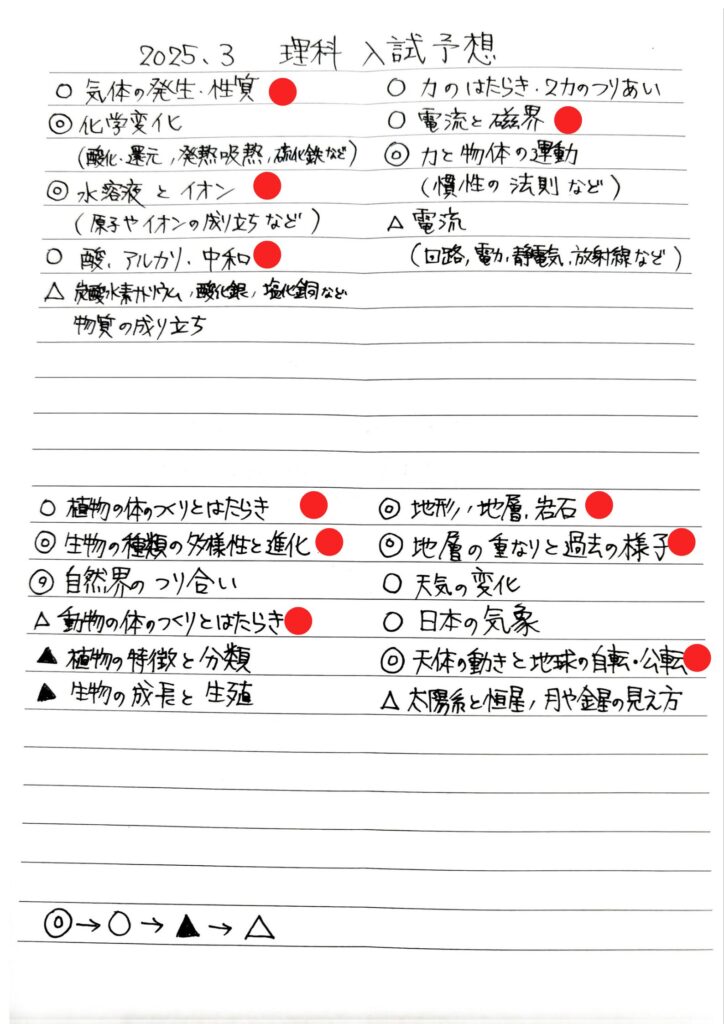 2025.3 理科 入試予想
○ 気体の発生・性質
◎ 化学変化
(酸化・還元, 発熱吸熱, 硫化鉄など)
◎ 水溶液とイオン
(原子やイオンの成り立ちなど)
○ 酸、アルカリ、中和
△ 炭酸水素ナトリウム, 酸化銀, 塩化銅など
物質の成り立ち
○ 力のはたらき・2力のつりあい
○ 電流と磁界
◎ 力と物体の運動
(慣性の法則など)
△ 電流
(回路, 電力, 静電気, 放射線など)
○ 植物の体のつくりとはたらき
◎ 生物の種類の多様性と進化
◎ 自然界のつり合い
△ 動物の体のつくりとはたらき
▲ 植物の特徴と分類
▲ 生物の成長と生殖
◎ 地形, 地層, 岩石
◎ 地層の重なりと過去の様子
○ 天気の変化
○ 日本の気象
◎ 天体の動きと地球の自転・公転
△ 太陽系と恒星, 月や金星の見え方
◎→○→▲→△